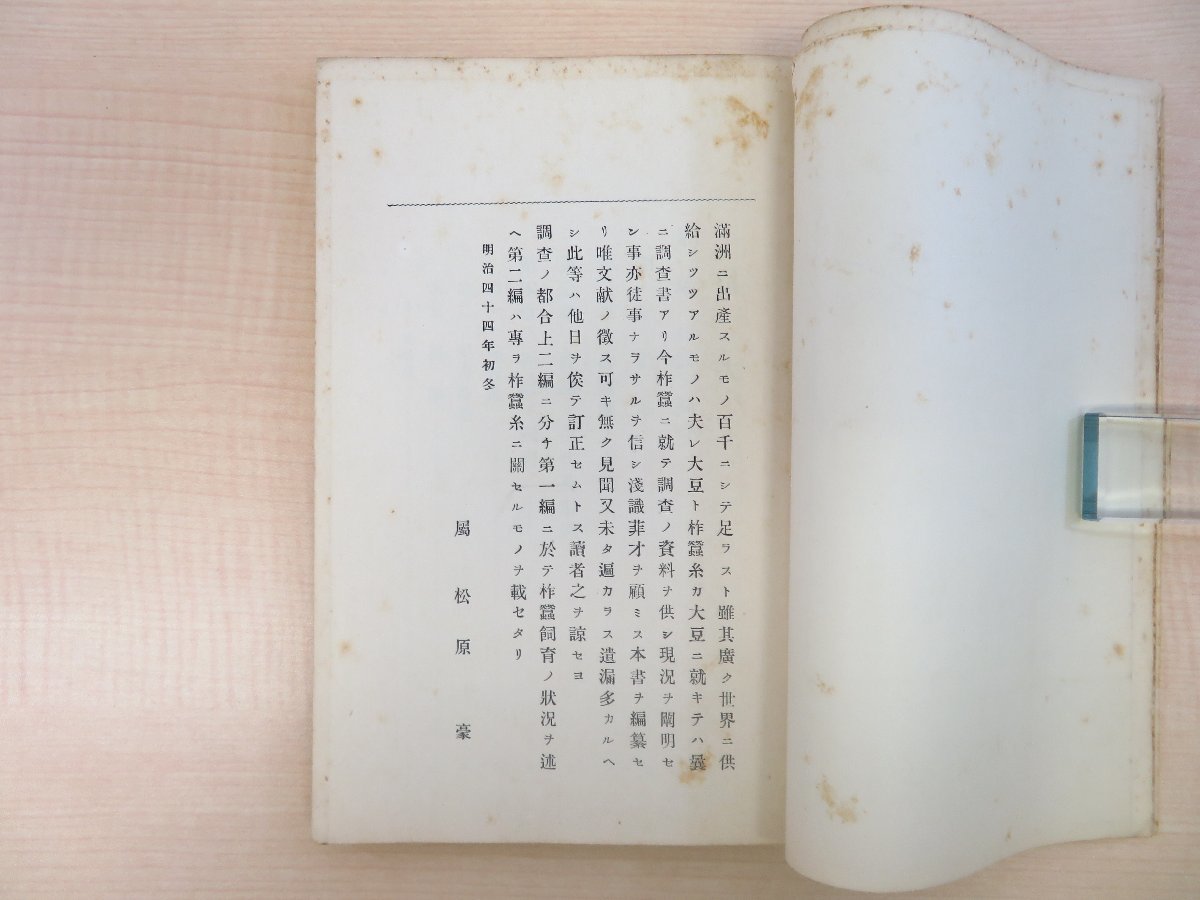 滿洲ニ出產スルモノ百千ニシテ足ラスト雖其廣ク世界ニ供
給シツツアルモノハ夫レ大豆ト柞蠶糸カ大豆ニ就キテハ曩
ニ調查書アリ今柞蠶ニ就テ調查ノ資料ヲ供シ現況ヲ闡明セ
ン事亦徒事ナラサルヲ信シ淺識菲才ヲ顧ミス本書ヲ編纂セ
リ唯文献ノ徵ス可キ無ク見聞又未タ遍カラス遺漏多カルヘ
シ此等ハ他日ヲ俟テ訂正セムトス讀者之ヲ諒セヨ
調查ノ都合上二編ニ分チ第一編ニ於テ柞蠶飼育ノ狀況ヲ述
ヘ第二編ハ專ヲ柞蠶糸ニ關セルモノヲ載セタリ
明治四十四年初冬
屬松原豪